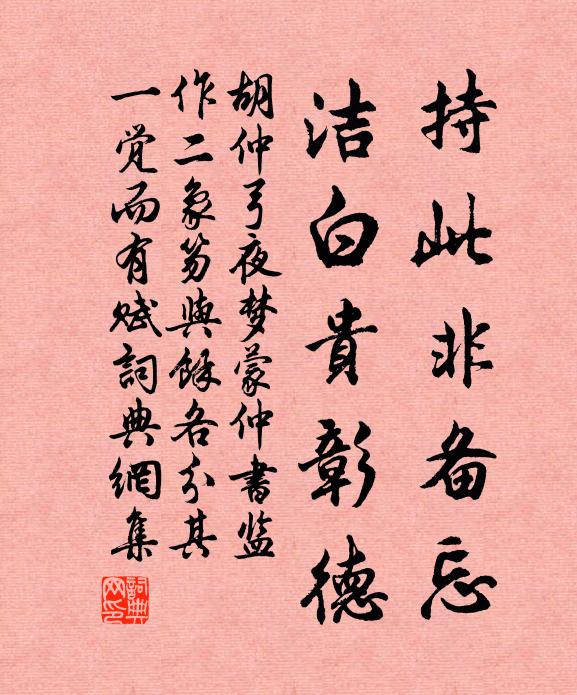 持此非备忘
洁白貴彰德
胡仲弓夜梦蒙仲书监
作二象笏與餘各分其
一觉而有赋詞典網集
詞典網印